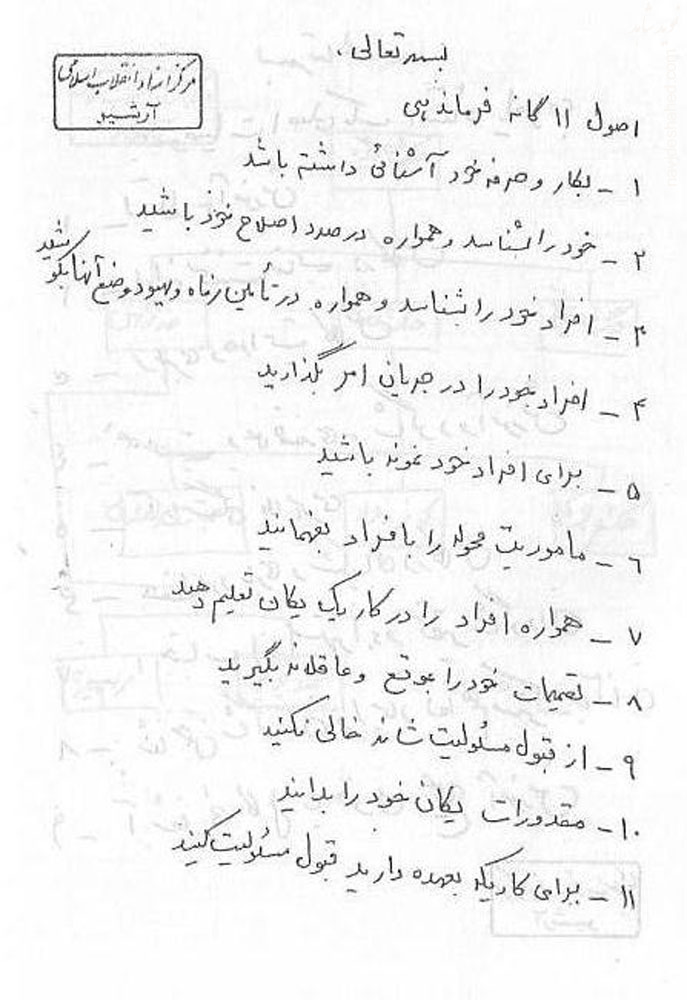 بسمه تعالی .
مرکز اسناد انقلاب اسلامی
آرشیو
اصول ۱۱ گانه فرماندهی
۱ - بکار و حرفه خود آشنائی داشته باشد
۲ - خود را بشناسد و همواره درصدد اصلاح خود باشید
۳ - افراد خود را بشناسد و همواره در تأمین رفاه و بهبود وضع آنها بکوشید
۴ - افراد خود را در جریان امر بگذارید
۵ - برای افراد خود نمونه باشید
۶ - ماموریت محوله را بافراد بفهمانید
۷ - همواره افراد را در کار یک یکان تعلیم دهید
۸ - تصمیمات خود را بموقع و عاقلانه بگیرید
۹ - از قبول مسئولیت شانه خالی نکنید
۱۰ - مقدورات یکان خود را بدانید
۱۱ - برای کاریکه بعهده دارید قبول مسئولیت کنید